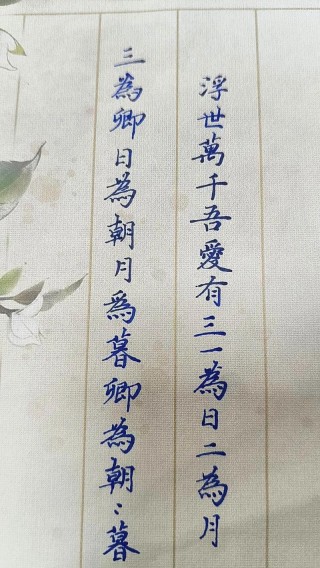 浮世萬千吾愛有三一為日二為月
三為卿日為朝月爲暮卿為朝：暮